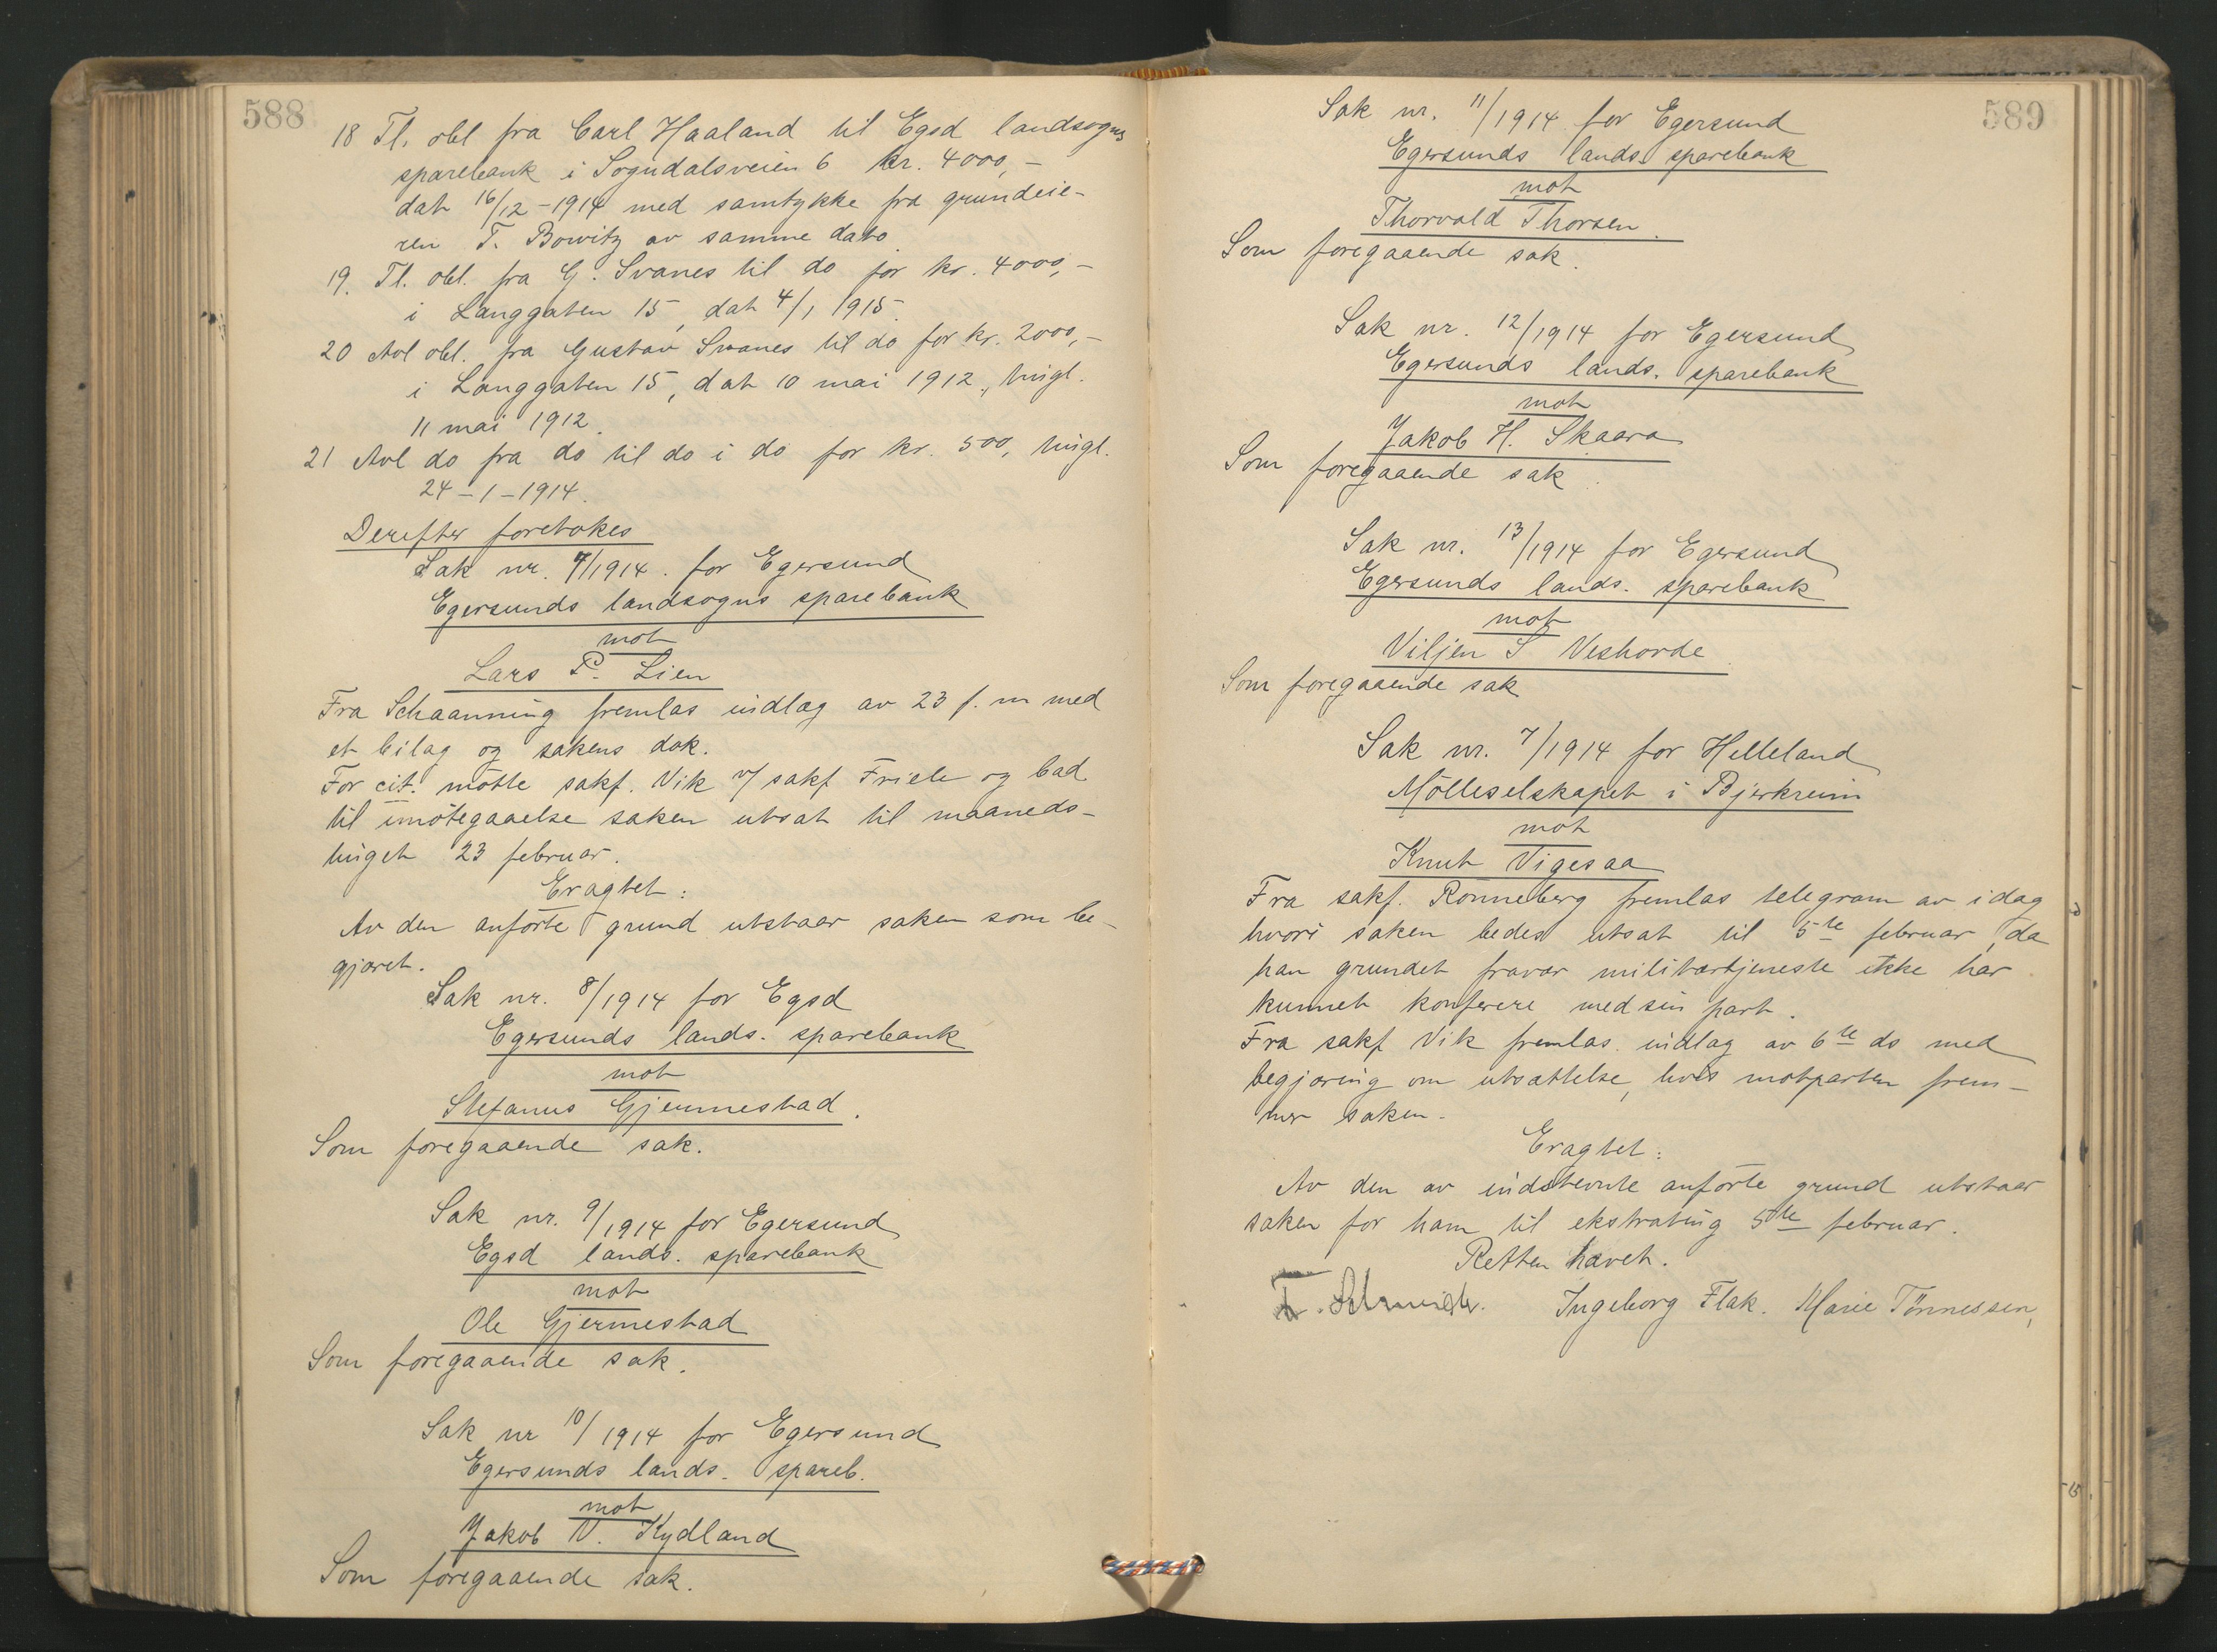 588
18 Tl. obl fra Carl Haaland til Egsd landsogns
sparebank i Sogndalsveien 6 kr. 4000,-
dat 16/12-1914 med samtykke fra grundeie-
ren T. Bowitz av samme dato.
19. Tl. obl. fra G. Svanes til do for kr. 4000,-
i Langgaten 15, dat 4/1 1915.
20 Avl obl. fra Gustav Svanes til do for kr. 2000,-
i Langgaten 15, dat 10 mai 1912, tingl.
11 mai 1912.
21 Avl do fra do til do i do for kr. 500, tingl.
24-1-1914.
Derefter foretokes
Sak nr. 7/1914. for Egersund
Egersunds landsogns sparebank
mot
Lars P. Lien
Fra Schaanning fremlas indlæg av 23 f. m med
et bilag og sakens dok.
For cit. møtte sakf. Vik v/ sakf Friele og bad
til imøtegaaelse saken utsat til maaneds-
tinget 23 februar.
Eragtet:
Av den anførte grund utstaar saken som be-
gjæret.
Sak nr. 8/1914 for Egsd
Egersunds lands. sparebank
mot
Stefanus Gjermestad.
Som foregaaende sak.
Sak nr. 9/1914 for Egersund
Egsd lands. sparebank
mot
Ole Gjermestad
Som foregaaende sak.
Sak nr 10/1914 for Egersund
Egersunds lands. spareb.
mot
Jakob N. Kydland
Som foregaaende sak.
589
Sak nr. 11/1914 for Egersund
Egersunds lands. sparebank
mot
Thorvald Thorsen.
Som foregaaende sak.
Sak nr. 12/1914 for Egersund
Egersunds lands. sparebank
mot
Jakob H. Skaara
Som foregaaende sak.
Sak nr. 13/1914 for Egersund
Egersunds lands. sparebank
mot
Viljen S Veshovde
Som foregaaende sak
Sak nr. 7/1914 for Helleland
Mølleselskapet i Bjerkreim
mot
Knut Vigesaa
Fra sakf. Rønneberg fremlas telegram av idag
hvori saken bedes utsat til 5te februar, da
han grundet fravær militærtjeneste ikke har
kunnet konferere med sin part.
Fra sakf Vik fremlas indlæg av 6te ds med
begjæring om utsættelse, hvis motparten frem-
mer saken.
Eragtet:
Av den av indstevnte anførte grund utstaar
saken for ham til ekstrating 5te februar.
Retten hævet.
Ingeborg Flak. Marie Tönnessen,